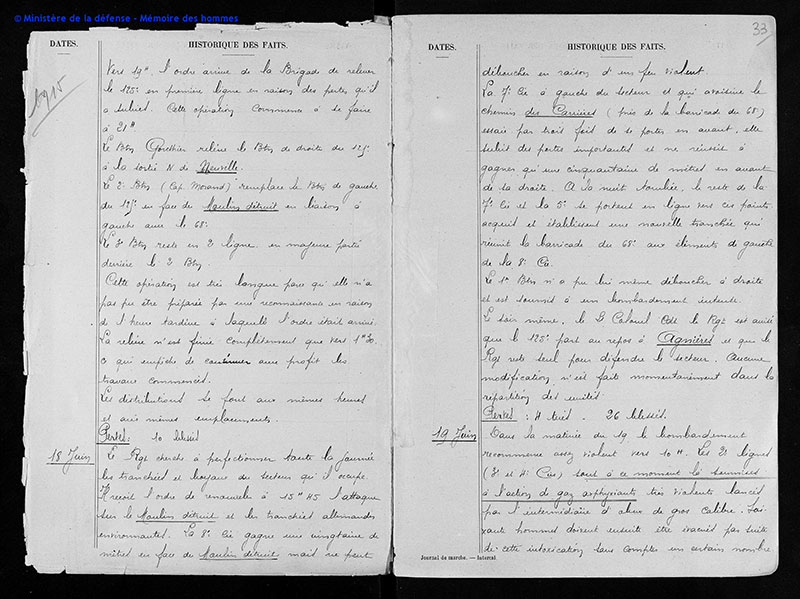 © Ministère de la défense - Mémoire des hommes
DATES.
HISTORIQUE DES FAITS.
1915
Vers 19h, l'ordre arrive de la Brigade de relever
le 125e en première ligne en raison des pertes qu'il
a subies. Cette opération commence à se faire
à 21h
Le Btn Gouthier relève le Btn de droite du 125e
à la sortie N de Neuville.
Le 2e Btn (Cap. Morand) remplace le Btn de gauche
du 125e en face du Moulin détruit en liaison à
gauche avec le 68e
Le 3e Btn reste en 2e ligne en majeure partie
derrière le 2 Btn
Cette opération est très longue parce qu'elle n'a
pas pu être préparée par une reconnaissance en raison
de l'heure tardive à laquelle l'ordre était arrivé.
La relève n'est finie complètement que vers 1h30.
ce qui empêche de continuer avec profit les
travaux commencés.
Les distributions se font aux mêmes heures
et aux mêmes emplacements.
Pertes : 10 blessés
18 Juin
Le Rgt cherche à perfectionner toute la journée
les tranchées et boyaux du secteur qu'il occupe.
Il reçoit l'ordre de à 15h45 l'attaque
sur le Moulin détruit et les tranchées allemandes
environnantes. La 8e Cie gagne une vingtaine de
mètres en face du Moulin détruit mais ne peut
33
DATES.
HISTORIQUE DES FAITS.
déboucher en raison d'un feu violent.
La 7e Cie à gauche du secteur et qui avoisine le
chemin des Carrières (près de la barricade du 68e)
essaie par trois fois de se porter en avant, elle
subit des pertes importantes et ne réussit à
gagner qu'une cinquantaine de mètres en avant
de sa droite. A la nuit tombée, le reste de la
7e Cie et la 5e se portent en ligne vers ces points
acquis et établissent une nouvelle tranchée qui
réunit la barricade du 68e aux éléments de gauche
de la 8e Cie.
Le 1er Btn n'a pu lui même déboucher à droite
et est soumis à un bombardement intense.
Le soir même, le Lt Colonel Cdt le Rgt est avisé
que le 125e part au repos à Agnières et que le
Rgt reste seul pour défendre le secteur. Aucune
modification n'est faite momentanément dans la
répartition des unités.
Pertes : 4 tués 26 blessés.
19 Juin
Dans la matinée du 19 le bombardement
recommence assez violent vers 10h. Les 2es lignes
(3e et 4e Cies) sont à ce moment là soumises
à l'action de gaz asphyxiants très violents lancés
par l'intermédiaire d'obus de gros calibre.
hommes doivent ensuite être évacués par suite
de cette intoxication sans compter un certain nombre
Journal de marche. — Intercal.